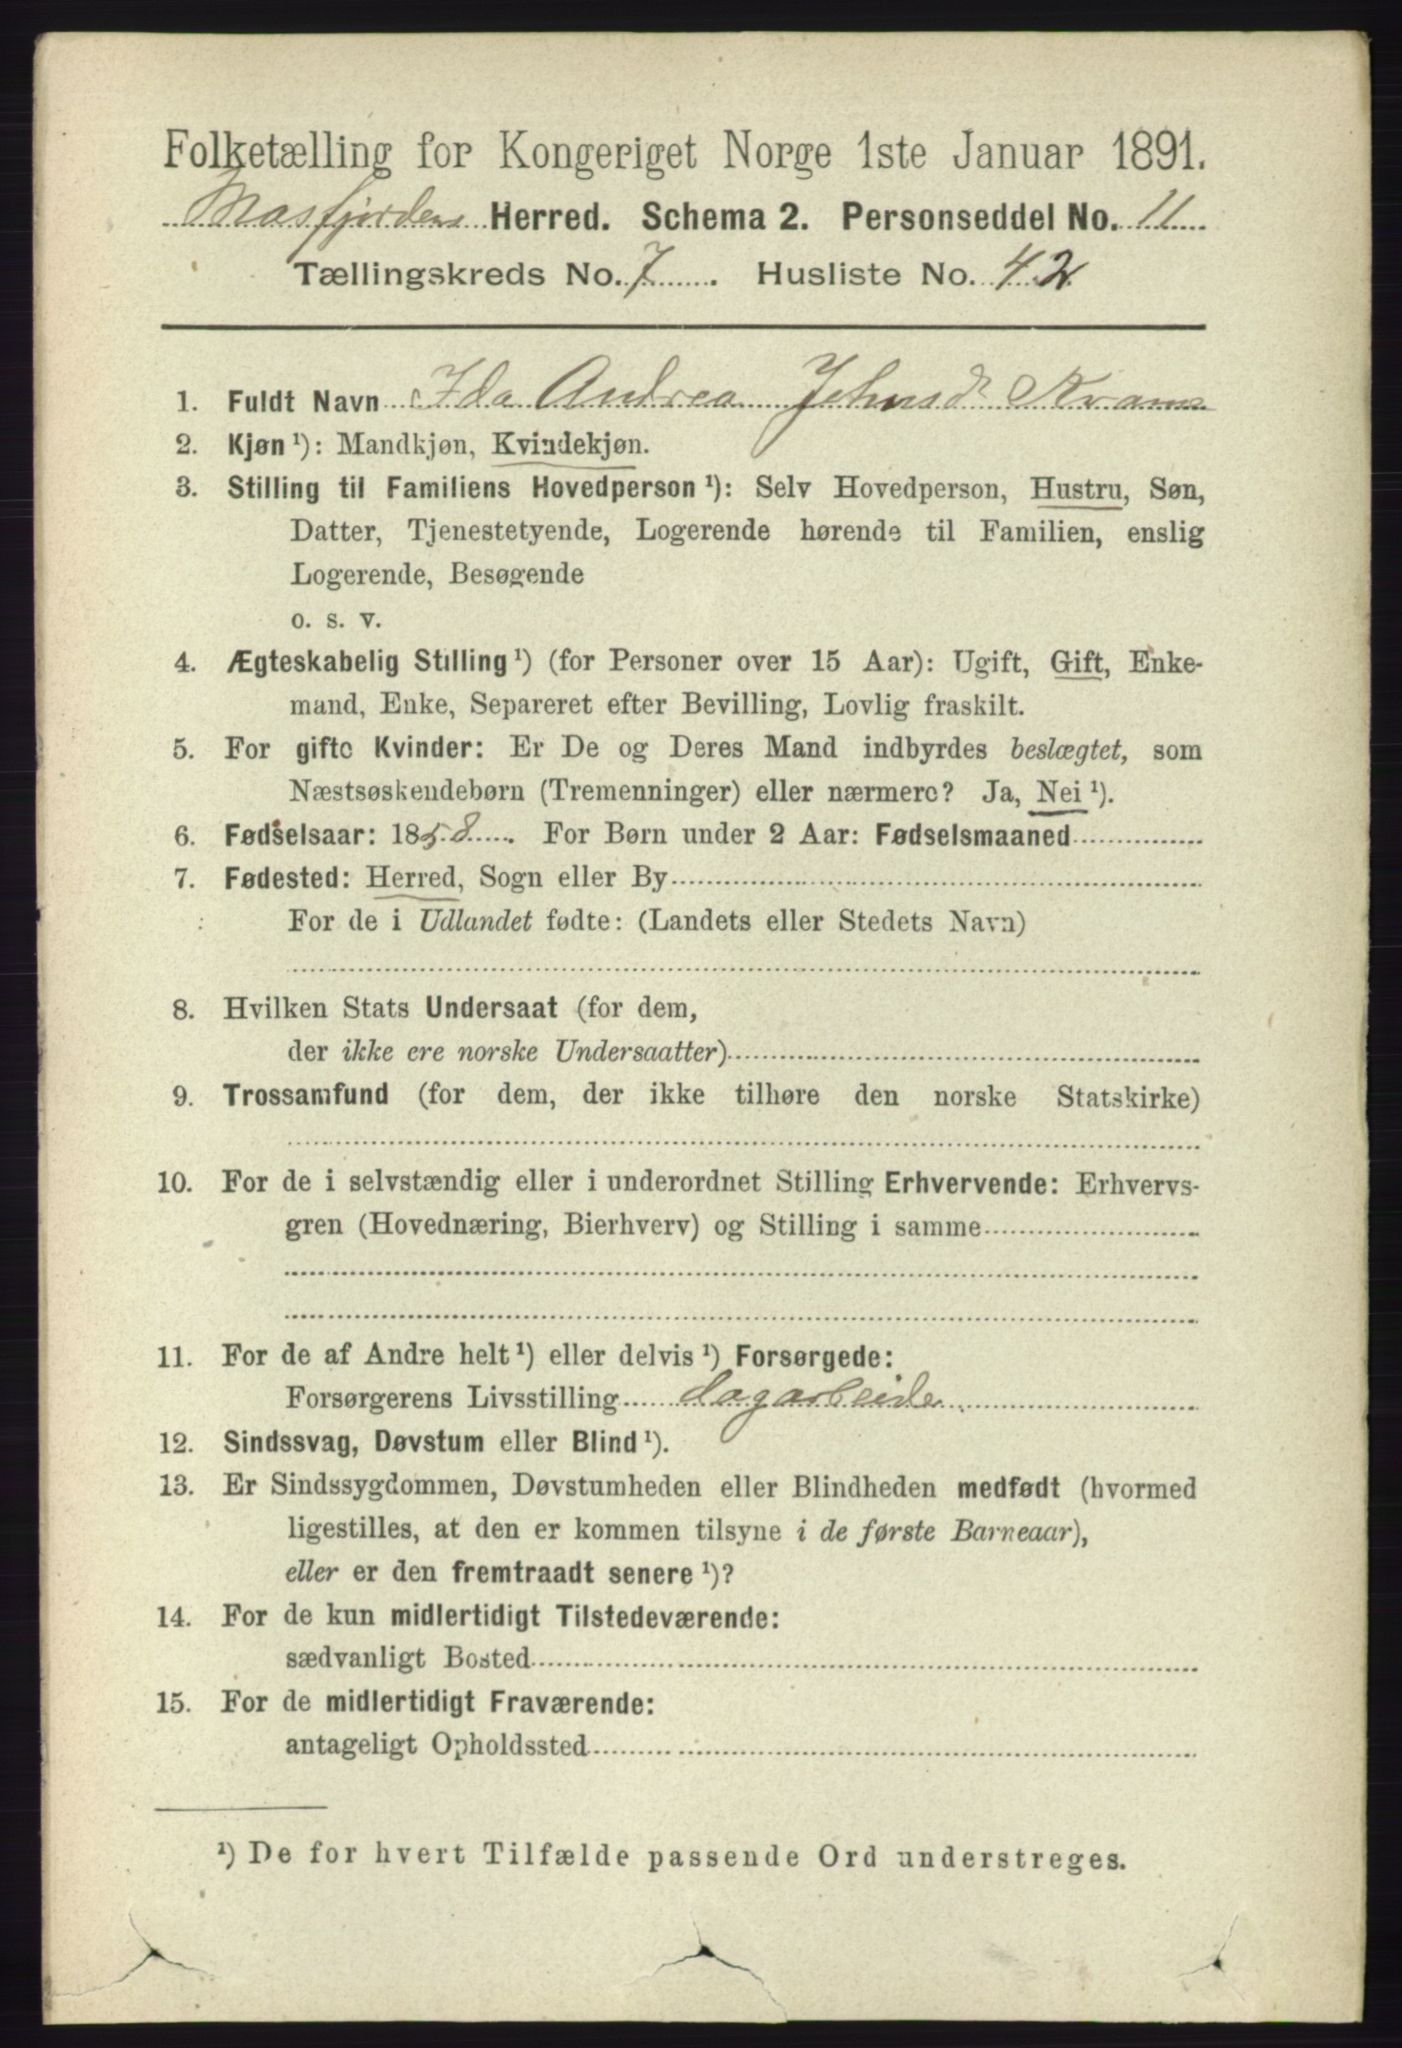 Folketælling for Kongeriget Norge 1ste Januar 1891.
Masfjorden Herred. Schema 2. Personseddel No. 11
Tællingskreds No. 7. Husliste No. 42
1. Fuldt Navn Ida Andrea Johnsd Kvams
2. Kjøn ¹): Mandkjøn, Kvindekjøn.
3. Stilling til Familiens Hovedperson ¹): Selv Hovedperson, Hustru, Søn,
Datter, Tjenestetyende, Logerende hørende til Familien, enslig
Logerende, Besøgende
o. s. v.
4. Ægteskabelig Stilling ¹) (for Personer over 15 Aar): Ugift, Gift, Enke-
mand, Enke, Separeret efter Bevilling, Lovlig fraskilt.
5. For gifte Kvinder: Er De og Deres Mand indbyrdes beslægtet, som
Næstsøskendebørn (Tremenninger) eller nærmere? Ja, Nei ¹).
6. Fødselsaar: 1858. For Børn under 2 Aar: Fødselsmaaned
7. Fødested: Herred, Sogn eller By
For de i Udlandet fødte: (Landets eller Stedets Navn)
8. Hvilken Stats Undersaat (for dem,
der ikke ere norske Undersaatter)
9. Trossamfund (for dem, der ikke tilhøre den norske Statskirke)
10. For de i selvstændig eller i underordnet Stilling Erhvervende: Erhvervs-
gren (Hovednæring, Bierhverv) og Stilling i samme
11. For de af Andre helt ¹) eller delvis ¹) Forsørgede:
Forsørgerens Livsstilling dagarbeider
12. Sindssvag, Døvstum eller Blind ¹).
13. Er Sindssygdommen, Døvstumheden eller Blindheden medfødt (hvormed
ligestilles, at den er kommen tilsyne i de første Barneaar),
eller er den fremtraadt senere ¹)?
14. For de kun midlertidigt Tilstedeværende:
sædvanligt Bosted
15. For de midlertidigt Fraværende:
antageligt Opholdssted
¹) De for hvert Tilfælde passende Ord understreges.